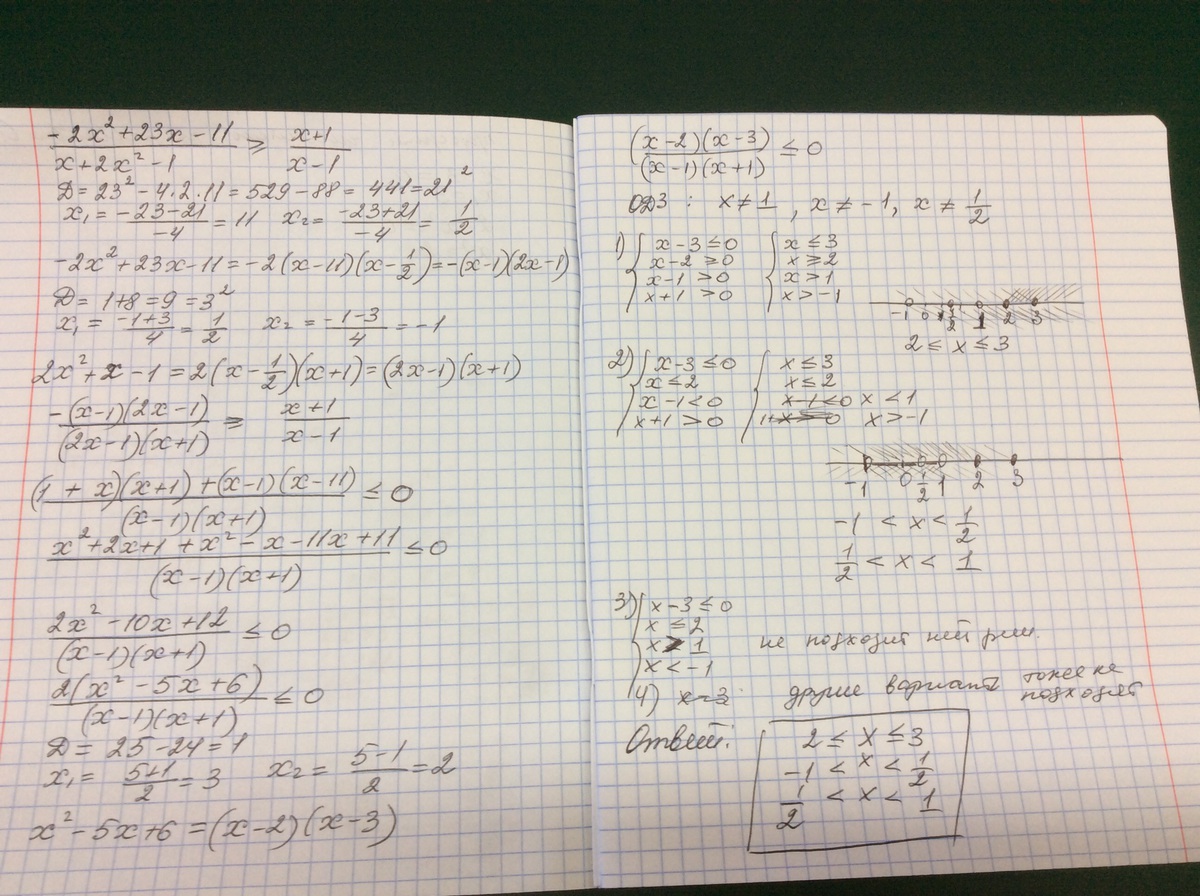 (-2x² + 23x - 11)/(x + 2x² - 1) ≥ (x+1)/(x-1)
D = 23² - 4·2·11 = 529 - 88 = 441 = 21²
x₁ = (-23-21)/-4 = 11 x₂ = (-23+21)/-4 = 1/2
-2x² + 23x - 11 = -2(x-11)(x - 1/2) = -(x-1)(2x-1)
D = 1+8 = 9 = 3²
x₁ = (-1+3)/4 = 1/2 x₂ = (-1-3)/4 = -1
2x² + x - 1 = 2(x - 1/2)(x+1) = (2x-1)(x+1)
-(x-1)(2x-1)/(2x-1)(x+1) ≥ (x+1)/(x-1)
((1 + x)(x+1) + (x-1)(x-11))/((x-1)(x+1)) ≤ 0
(x² + 2x + 1 + x² - x - 11x + 11)/((x-1)(x+1)) ≤ 0
(2x² - 10x + 12)/((x-1)(x+1)) ≤ 0
2(x² - 5x + 6)/((x-1)(x+1)) ≤ 0
D = 25 - 24 = 1
x₁ = (5+1)/2 = 3 x₂ = (5-1)/2 = 2
x² - 5x + 6 = (x-2)(x-3)
(x-2)(x-3)/((x-1)(x+1)) ≤ 0
ОДЗ: x ≠ 1, x ≠ -1, x ≠ 1/2
1) { x - 3 ≤ 0 { x ≤ 3
x - 2 ≥ 0 x ≥ 2
x - 1 > 0 x > 1
x + 1 > 0 x > -1
-1 0 1/2 1 2 3
2 ≤ x ≤ 3
2) { x - 3 ≤ 0 { x ≤ 3
x ≤ 2 x ≤ 2
x - 1 < 0 x - 1 < 0 x < 1
x + 1 > 0 1 + x > 0 x > -1
-1 0 1/2 1 2 3
-1 < x < 1/2
1/2 < x < 1
3) { x - 3 ≤ 0
x ≤ 2
x > 1 не подходит нет реш.
x < -1
4) x - 3 другие варианты тоже не
подходят
Ответ: 2 ≤ x ≤ 3
-1 < x < 1/2
1/2 < x < 1